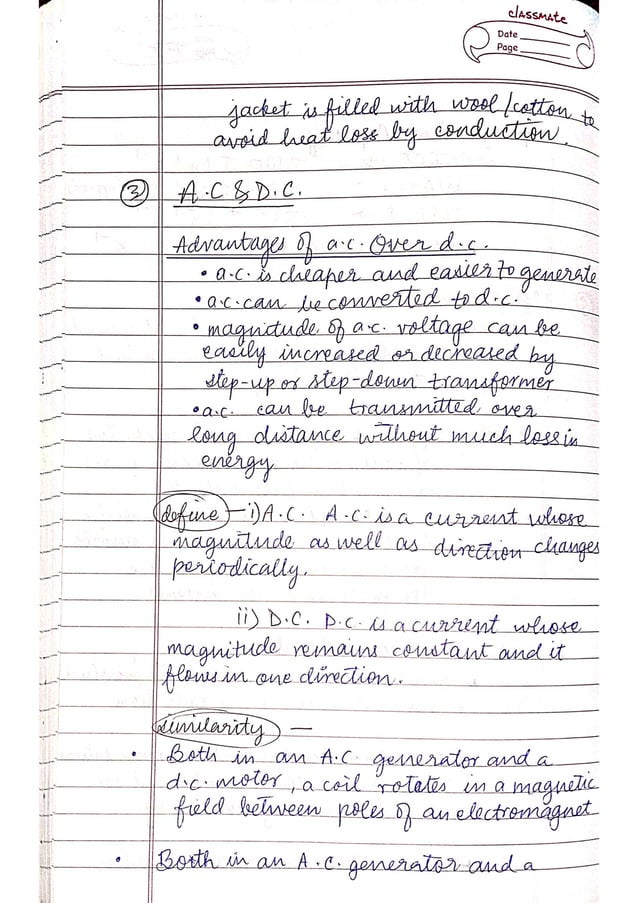 classmate
Date
Page
jacket is filled with wool/cotton to
avoid heat loss by conduction.
③ A.C & D.C.
Advantages of a.c. Over d.c.
• a.c. is cheaper and easier to generate
• a.c. can be converted to d.c.
• magnitude of a.c. voltage can be
easily increased or decreased by
step-up or step-down transformer
• a.c. can be transmitted over
long distance without much loss in
energy
define — i) A.C. A.C. is a current whose
magnitude as well as direction changes
periodically.
ii) D.C. D.C. is a current whose
magnitude remains constant and it
flows in one direction.
Similarity —
• Both in an A.C. generator and a
d.c. motor, a coil rotates in a magnetic
field between poles of an electromagnet
• Booth in an A.C. generator and a